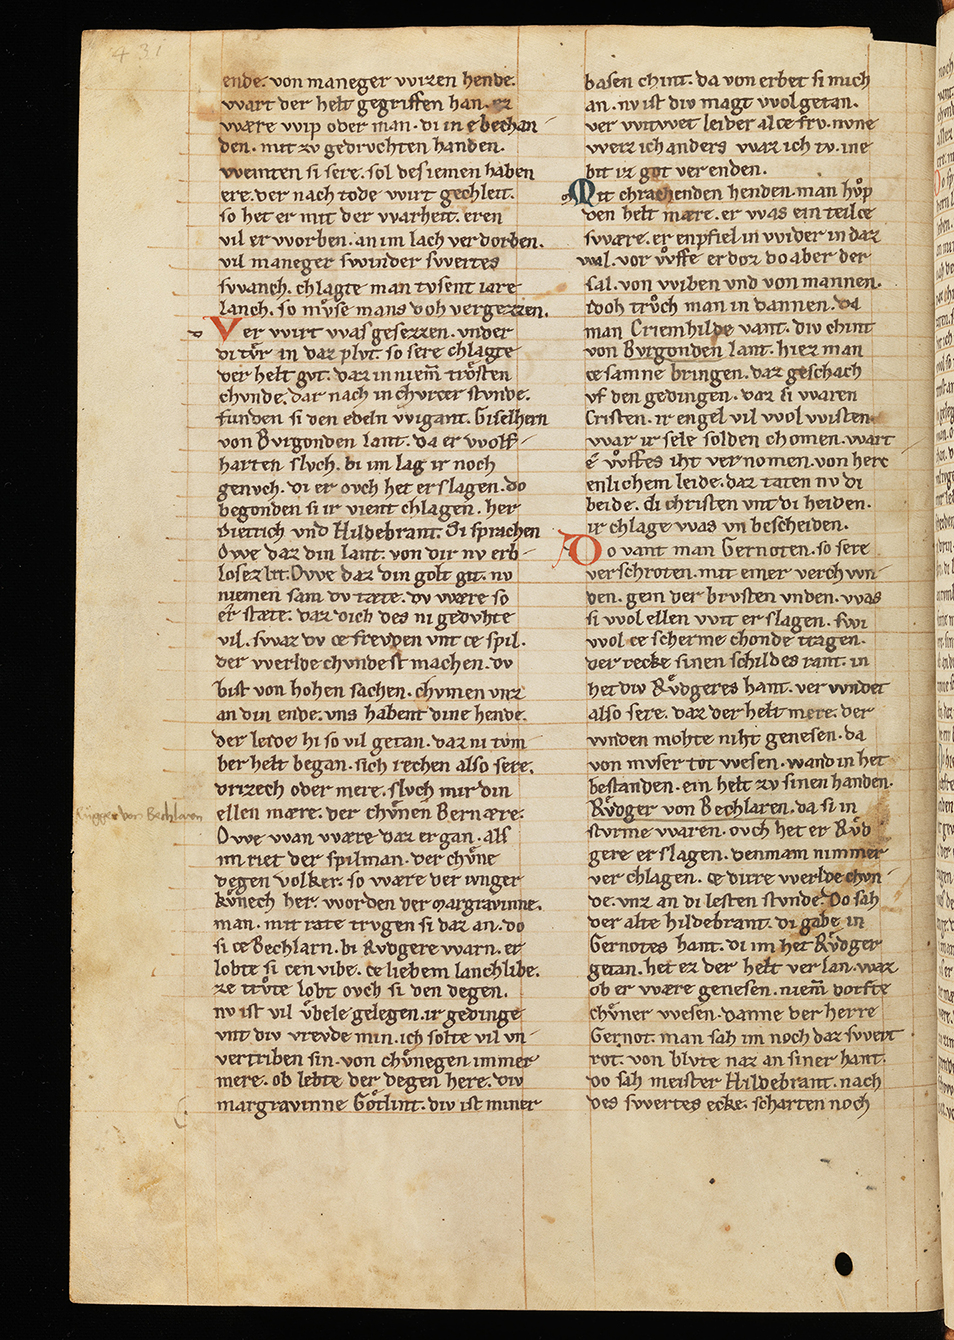 431
ende. von maneger wizen hende.
wart der helt gegriffen han. ez
wære wip oder man. di in e bechan
den. mit zv gedrvchten handen.
weinten si sere. sol des iemen haben
ere. der nach tode wirt gechleit.
so het er mit der warheit. eren
vil erworben. an im lach verdorben.
vil maneger swinder swertes
swanch. chlagte man tvsent iare
lanch. so mvͦse mans doh vergezzen.
Der wirt was gesezzen. vnder
di tvͤr in daz plvt. so sere chlagte
der helt gvt. daz in niem̄ trôsten
chvnde. dar nach in chvrcer stvnde.
funden si den edeln wigant. Giselhern
von Bvrgonden lant. da er wolf
harten slvch. bi im lag ir noch
genvch. di er ovch het erslagen. do
begonden si ir vient chlagen. her
Dietrich vnd Hildebrant. Si sprachen
Owe daz din lant. von dir nv erb
losez lit. Owe daz din golt git. nv
niemen sam dv tæte. dv wære so
er stæte. daz dich des ni gedvhte
vil. swaz dv ce frevden vnt ce spil.
der werlde chvndest machen. dv
bist von hohen sachen. chvmen vnz
an din ende. vns habent dine hende.
der leide hi so vil getan. daz ni tvm
ber helt began. sich rechen also sere.
drizech oder mere. slvch mir din
ellen mære. der chvͤnen Bernære.
Rügger von Bechlaren
Owe wan wære daz ergan. als
im riet der spilman. der chvͤne
degen volker. so wære der ivnger
kvͤnech her. worden der margravinne.
man. mit rate trvgen si daz an. do
si ce Bechlarn. bi Rvdgere warn. er
lobte si cen wibe. ce liebem lanchlibe.
ze trôte lobt ovch si den degen.
nv ist vil vͤbele gelegen. ir gedinge
vnt div vrevde min. ich solte vil vn
vertriben sin. von chvͤnegen immer
mere. ob lebte der degen here. div
margravinne Gôtlint. div ist miner
basen chint. da von erbet si mich
an. nv ist div magt wol getan.
ver witwet leider al ce frv. nvne
weiz ich anders waz ich tv. ine
bit iz got ver enden.
Mit chrachenden henden. man hvͦp
den helt mære. er was ein teil ce
swære. er enpfiel in wider in daz
wal. vor wͦffe erdoz do aber der
sal. von wiben vnd von mannen.
doch trvͦch man in dannen. da
man Criemhilde vant. div chint
von Bvrgonden lant. hiez man
ce samne bringen. daz geschach
vf den gedingen. daz si waren
Cristen. ir engel vil wol wisten.
war ir sele solden chomen. wart
é wͦffes iht vernomen. von herc
enlichem leide. daz taten nv di
beide. di christen vnt di heiden.
ir chlage was vn bescheiden.
Do vant man Gernoten. so sere
verschroten. mit einer verch wn
den. gein der brvsten vnden. was
si wol ellen wit erslagen. swi
wol ce scherme chonde tragen.
der recke sinen schildes rant. in
het div Rvͤdgeres hant. verwndet
also sere. daz der helt mere. der
wnden mohte niht genesen. da
von mvser tot wesen. wand in het
bestanden. ein helt zv sinen handen.
Rvͤdger von Bechlaren. da si in
stvrme waren. ovch het er Rvͤd
gere erslagen. den mam nimmer
verchlagen. ce dirre werlde chvn
de. vnz an di lesten stvnde. Do sah
der alte hildebrant. di gabe in
Gernotes hant. di im het Rvͤdger
getan. het ez der helt verlan. waz
ob er wære genesen. niem̄ dorfte
chvͤner wesen. danne der herre
Gernot. man sah im noch daz swert
rot. von blvte naz an siner hant.
do sah meister Hildebrant. nach
des swertes ecke. scharten noch